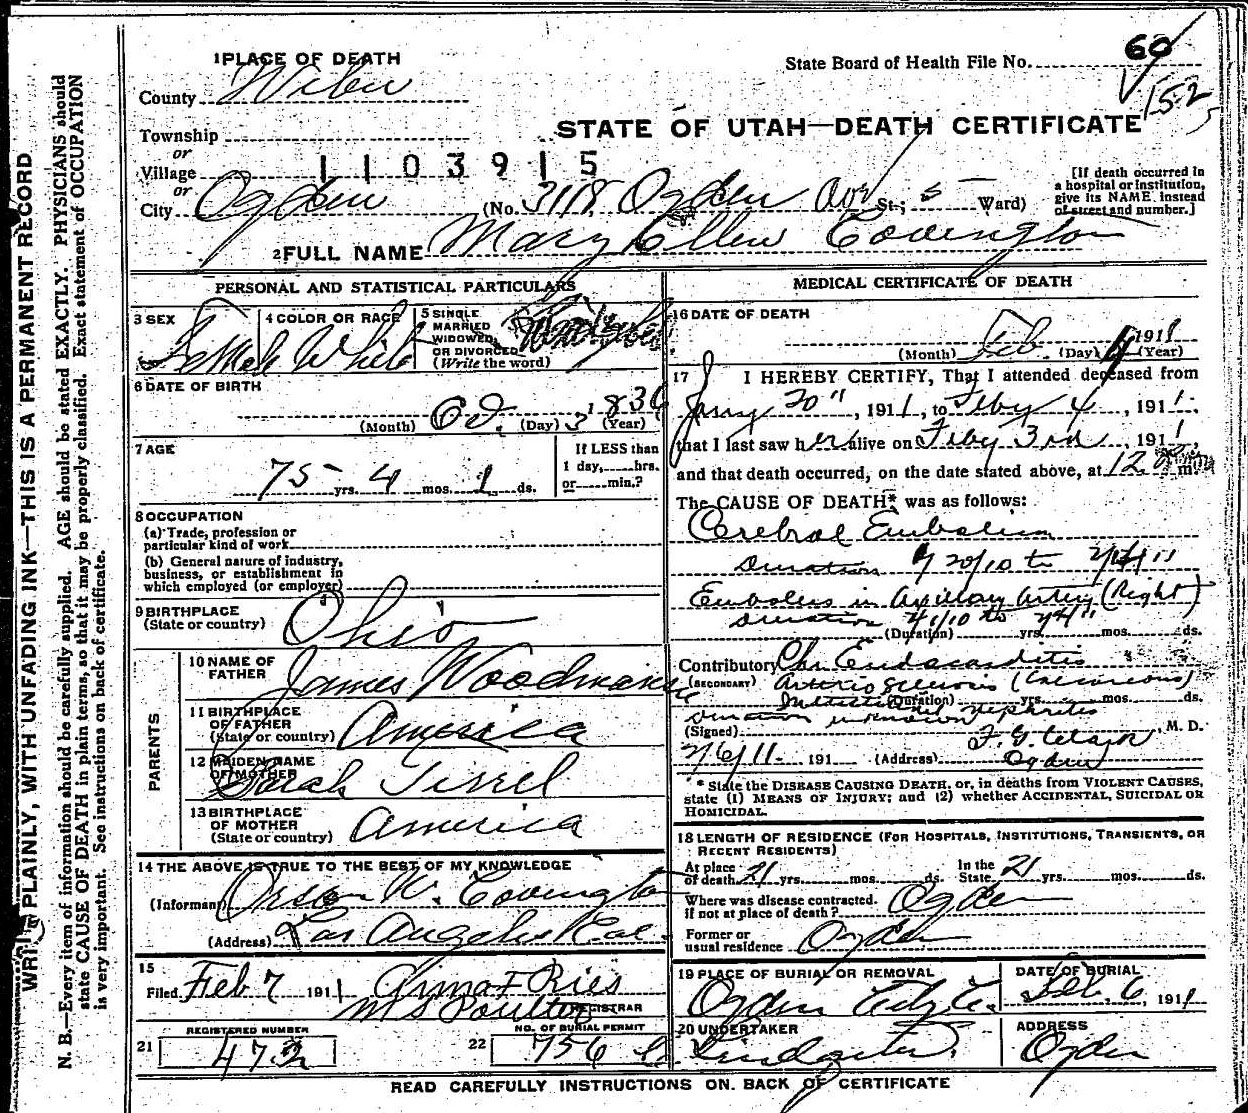 60
152
State Board of Health File No.
1 PLACE OF DEATH
County Weber
STATE OF UTAH—DEATH CERTIFICATE
Township
or
Village
1103915
or
City Ogden (No. 3118 Ogden Ave St.; 5 Ward)
[If death occurred in a hospital or institution, give its NAME instead of street and number.]
2 FULL NAME Mary Ellen Covington
PERSONAL AND STATISTICAL PARTICULARS
3 SEX Female
4 COLOR OR RACE White
5 SINGLE MARRIED WIDOWED OR DIVORCED (Write the word)
6 DATE OF BIRTH
Oct. 3 1836
(Month) (Day) (Year)
7 AGE
75 yrs. 4 mos. 1 ds.
If LESS than 1 day, hrs. or min.?
8 OCCUPATION
(a) Trade, profession or particular kind of work
(b) General nature of industry, business, or establishment in which employed (or employer)
9 BIRTHPLACE
(State or country) Ohio
PARENTS
10 NAME OF FATHER James Woodmansee
11 BIRTHPLACE OF FATHER (State or country) America
12 MAIDEN NAME OF MOTHER Sarah Tirrel
13 BIRTHPLACE OF MOTHER (State or country) America
14 THE ABOVE IS TRUE TO THE BEST OF MY KNOWLEDGE
(Informant) Orson W. Covington
(Address) Los Angeles Cal.
15
Filed Feb 7 1911
M S Poulter REGISTRAR
REGISTERED NUMBER
21 472
NO. OF BURIAL PERMIT
22 756
MEDICAL CERTIFICATE OF DEATH
16 DATE OF DEATH
Feb. 4 1911
(Month) (Day) (Year)
17 I HEREBY CERTIFY, That I attended deceased from
Jany 20", 1911, to Feby 4, 1911,
that I last saw her alive on Feby 3rd, 1911,
and that death occurred, on the date stated above, at 12 m.
The CAUSE OF DEATH* was as follows:
Cerebral Embolism
Duration
Embolus in Axillary Artery (Right)
Duration
(Duration) yrs. mos. ds.
Contributory Chr. Endocarditis
(SECONDARY) Arterio Sclerosis (Calcareous)
(Duration) yrs. mos. ds.
Interstitial Nephritis
Duration unknown
(Signed) M. D.
2/6/11 191 (Address) Ogden
* State the DISEASE CAUSING DEATH, or, in deaths from VIOLENT CAUSES, state (1) MEANS OF INJURY; and (2) whether ACCIDENTAL, SUICIDAL OR HOMICIDAL.
18 LENGTH OF RESIDENCE (FOR HOSPITALS, INSTITUTIONS, TRANSIENTS, OR RECENT RESIDENTS)
At place of death 21 yrs. mos. ds. In the State 21 yrs. mos. ds.
Where was disease contracted, if not at place of death? Ogden
Former or usual residence Ogden
19 PLACE OF BURIAL OR REMOVAL
Ogden City
DATE OF BURIAL
Feb. 6, 1911
20 UNDERTAKER
Lindquist
ADDRESS
Ogden
READ CAREFULLY INSTRUCTIONS ON BACK OF CERTIFICATE
WRITE PLAINLY, WITH UNFADING INK—THIS IS A PERMANENT RECORD
N. B.—Every item of information should be carefully supplied. AGE should be stated EXACTLY. PHYSICIANS should
state CAUSE OF DEATH in plain terms, so that it may be properly classified. Exact statement of OCCUPATION
is very important. See instructions on back of certificate.